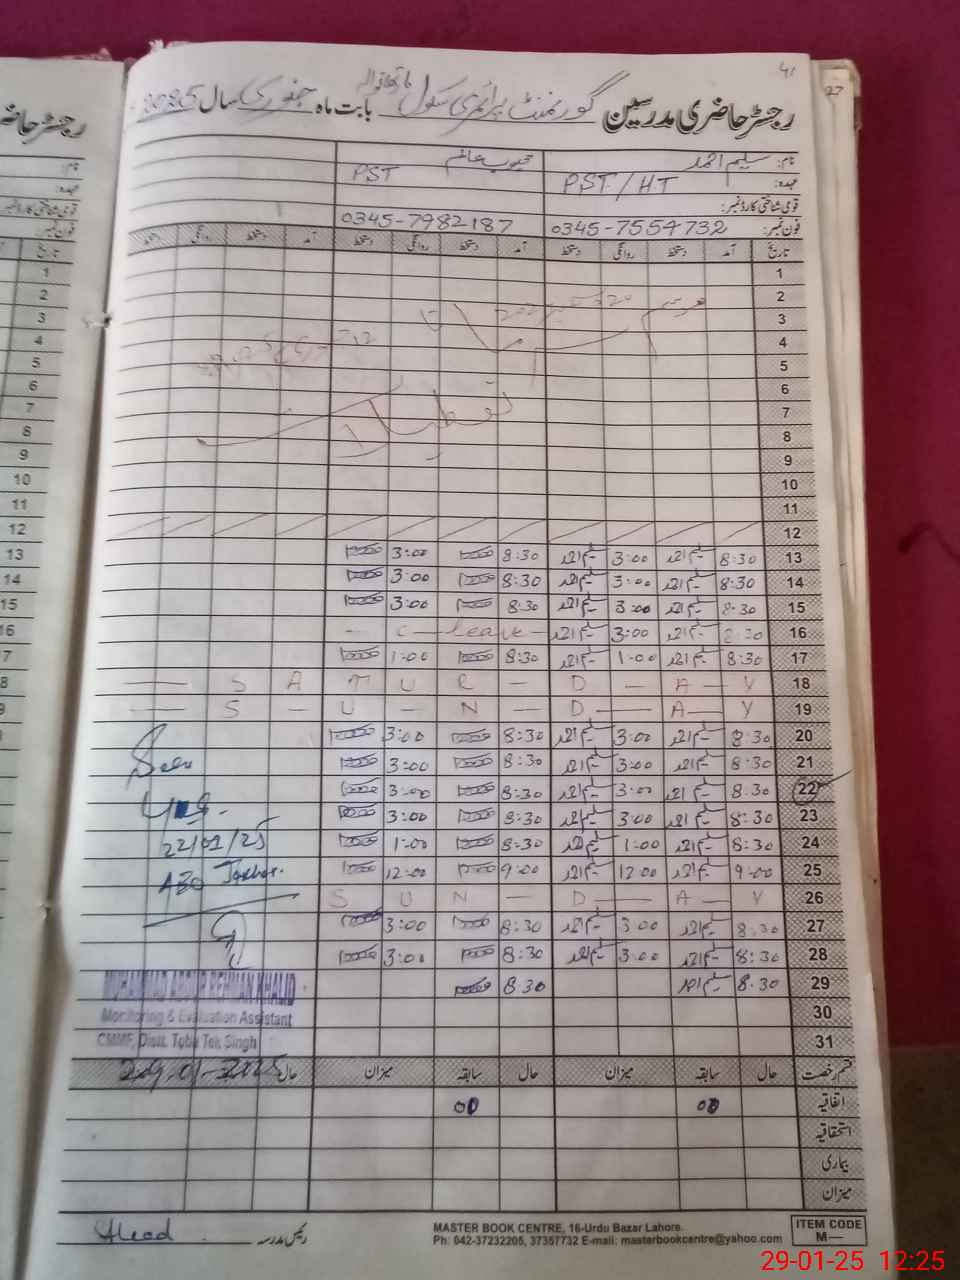 41
رجسٹر حاضری مدرسین گورنمنٹ پرائمری سکول بابت ماہ جنوری سال 2025
نام: سلیم احمد محبوب عالم
عہدہ: PST/H.T PST
قومی شناختی کارڈ نمبر:
فون نمبر: 0345-7554732 0345-7982187
تاریخ آمد دستخط روانگی دستخط آمد دستخط روانگی دستخط آمد دستخط روانگی دستخط
1
2
3
4
5
6
7
8
9
10
11
تعطیلات
12
13 8:30 سلیم احمد 3:00 سلیم احمد 8:30 3:00
14 8:30 سلیم احمد 3:00 سلیم احمد 8:30 3:00
15 8:30 سلیم احمد 3:00 سلیم احمد 8:30 3:00
16 8:30 سلیم احمد 3:00 سلیم احمد - C - leave -
17 8:30 سلیم احمد 1:00 سلیم احمد 8:30 1:00
— S A T U R — D — A — Y 18
— S — U — N — D — A — Y 19
20 8:30 سلیم احمد 3:00 سلیم احمد 8:30 3:00
21 8:30 سلیم احمد 3:00 سلیم احمد 8:30 3:00
22 8:30 سلیم احمد 3:00 سلیم احمد 8:30 3:00
23 8:30 سلیم احمد 3:00 سلیم احمد 8:30 3:00
24 8:30 سلیم احمد 1:00 سلیم احمد 8:30 1:00
25 9:00 سلیم احمد 12:00 سلیم احمد 9:00 12:00
S U N — D — A — Y 26
27 8:30 سلیم احمد 3:00 سلیم احمد 8:30 3:00
28 8:30 سلیم احمد 3:00 سلیم احمد 8:30 3:00
29 8:30 سلیم احمد 8:30
30
31
Seen
22/01/25
MUHAMMAD ABDUR REHMAN KHALID
Monitoring & Evaluation Assistant
CMMF, Distt. Toba Tek Singh
29-01-2025
قسم رخصت حال سابقہ میزان حال سابقہ میزان حال
اتفاقیہ 00 00
استحقاقیہ
بیماری
میزان
رئیس مدرسہ Head
MASTER BOOK CENTRE, 16-Urdu Bazar Lahore.
Ph: 042-37232205, 37357732 E-mail: masterbookcentre@yahoo.com
ITEM CODE
M—
29-01-25 12:25